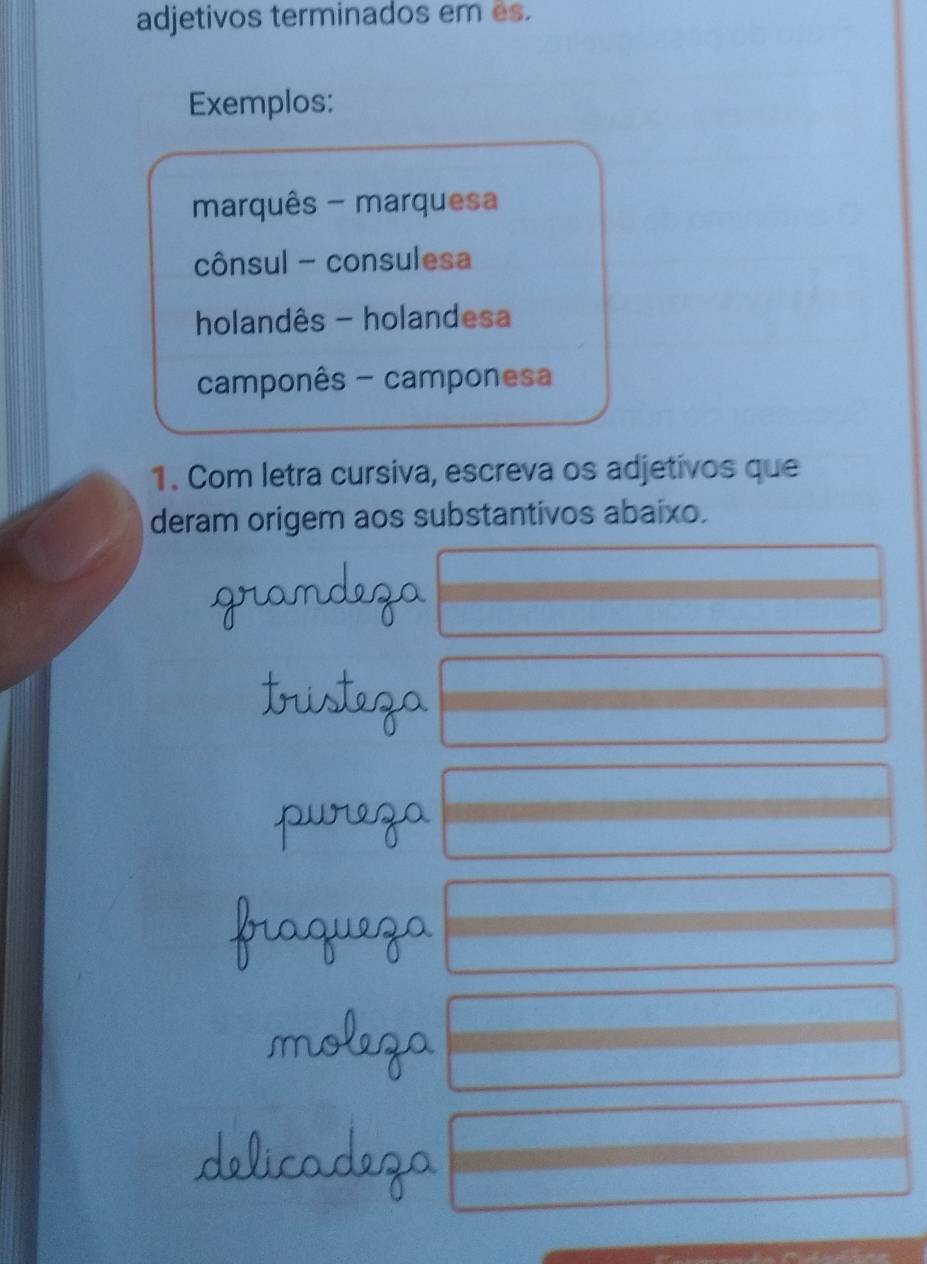 adjetivos terminados em ês.
Exemplos:
marquês - marquesa
cônsul - consulesa
holandês - holandesa
camponês - camponesa
1. Com letra cursiva, escreva os adjetivos que
deram origem aos substantivos abaixo.
grandeza
tristeza
pureza
fraqueza
moleza
delicadeza